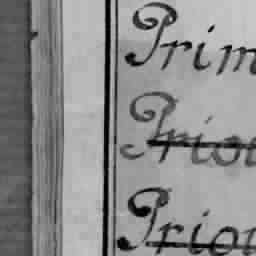 Prim
Priou
Priou